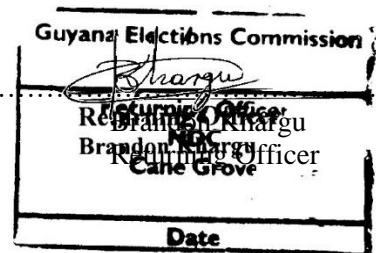 Guyana Elections Commission
B Khargu
Returning Officer
Brandon Khargu
NGC
Brandon Khargu
Returning Officer
Cane Grove
Date